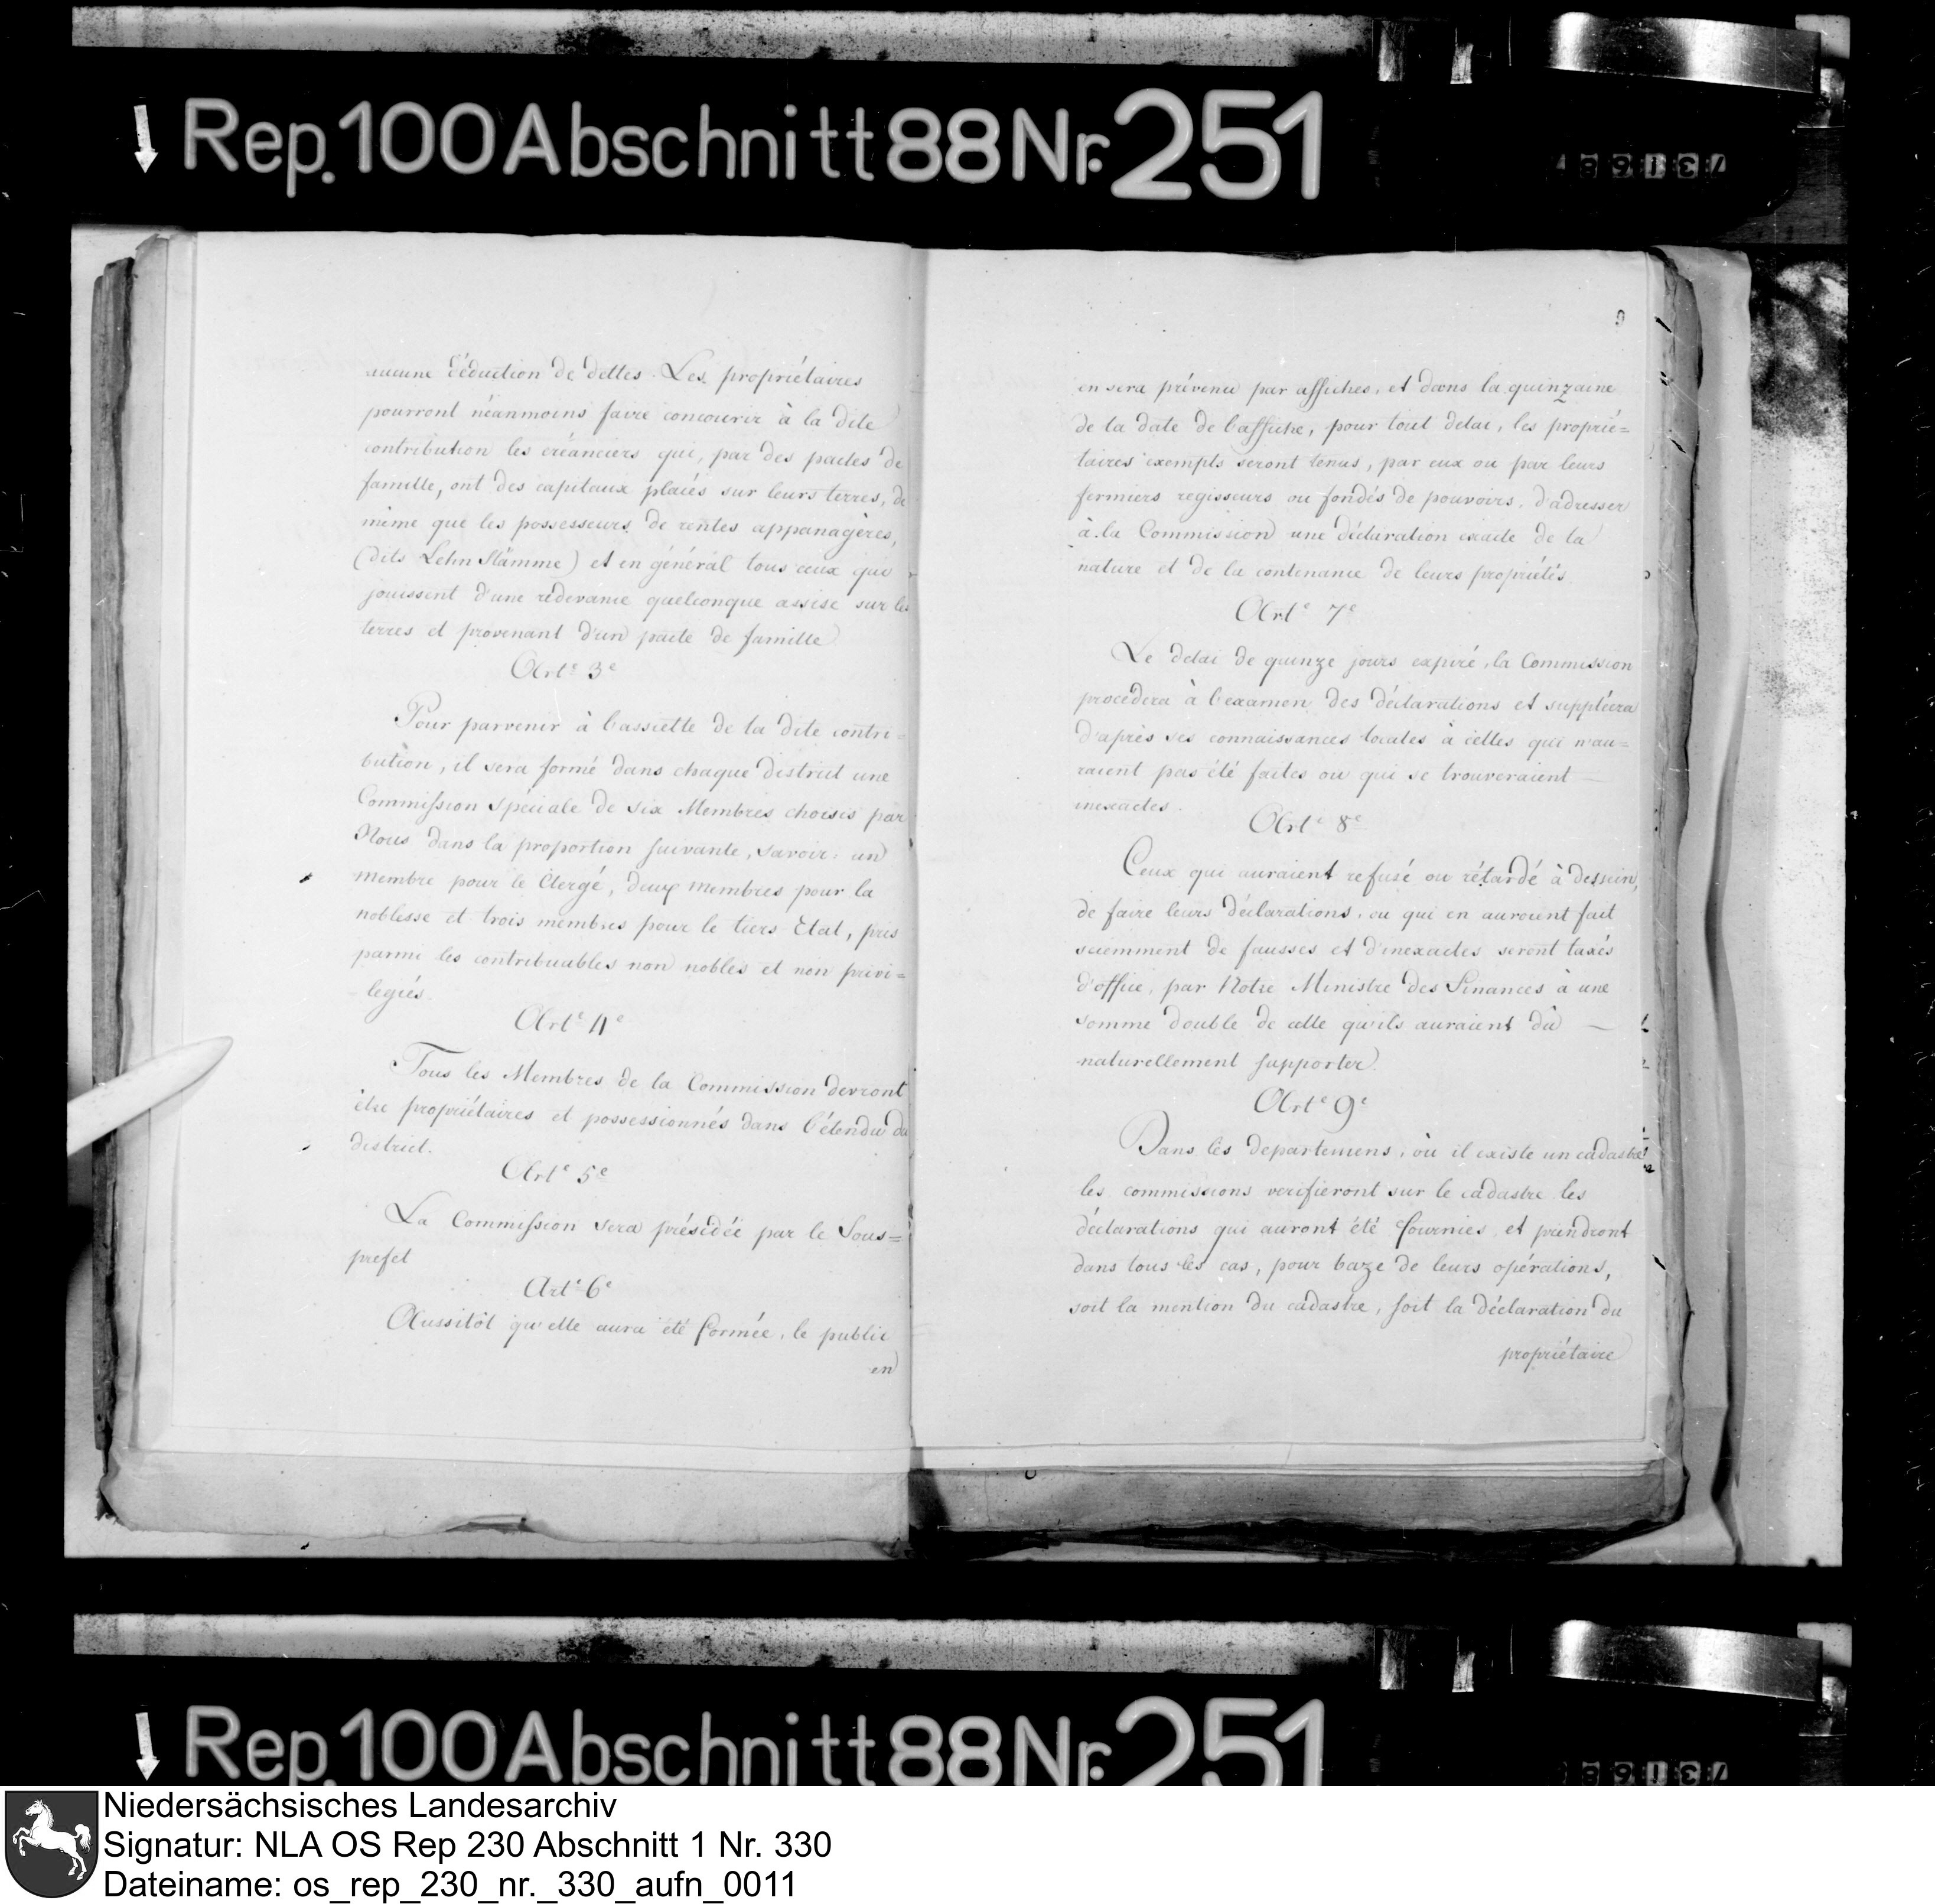 Rep. 100 Abschnitt 88 Nr. 251
aucune déduction de dettes. Les propriétaires
pourront néanmoins faire concourir à la dite
contribution les créanciers qui, par des pactes de
famille, ont des capitaux placés sur leurs terres, de
même que les possesseurs de rentes appanagères,
(dits Lehn Stämme) et en général tous ceux qui
jouissent d'une redevance quelconque assise sur les
terres et provenant d'un pacte de famille
Art.e 3e
Pour parvenir à l'assiette de la dite contri=
bution, il sera formé dans chaque district une
Commission spéciale de six Membres choisis par
Nous dans la proportion suivante, savoir: un
membre pour le Clergé, deux membres pour la
noblesse et trois membres pour le tiers Etat, pris
parmi les contribuables non nobles et non privi=
legiés.
Art.e 4e
Tous les Membres de la Commission devront
être propriétaires et possessionnés dans l'étendue du
district.
Art.e 5e
La Commission sera présidée par le Sous=
prefet
Art.e 6e
Aussitôt qu'elle aura été formée, le public
en
9
en sera prévenu par affiches, et dans la quinzaine
de la date de l'affiche, pour tout delai, les proprié=
taires exempts seront tenus, par eux ou par leurs
fermiers regisseurs ou fondés de pouvoirs, d'adresser
à la Commission une déclaration exacte de la
nature et de la contenance de leurs propriétés.
Art.e 7e
Le delai de quinze jours expiré, la Commission
procédera à l'examen des déclarations et suppléera
d'après ses connaissances locales à celles qui n'au=
raient pas été faites ou qui se trouveraient
inexactes.
Art.e 8e
Ceux qui auraient refusé ou rétardé à dessein,
de faire leurs déclarations, ou qui en auroient fait
sciemment de fausses et d'inexactes seront taxés
d'office, par Notre Ministre des Finances à une
somme double de celle qu'ils auraient dû
naturellement supporter.
Art.e 9e
Dans les departemens, où il existe un cadastre
les commissions verifieront sur le cadastre les
déclarations qui auront été fournies et prendront
dans tous les cas, pour baze de leurs opérations,
soit la mention du cadastre, soit la déclaration du
propriétaire
Rep. 100 Abschnitt 88 Nr. 251
Niedersächsisches Landesarchiv
Signatur: NLA OS Rep 230 Abschnitt 1 Nr. 330
Dateiname: os_rep_230_nr._330_aufn_0011